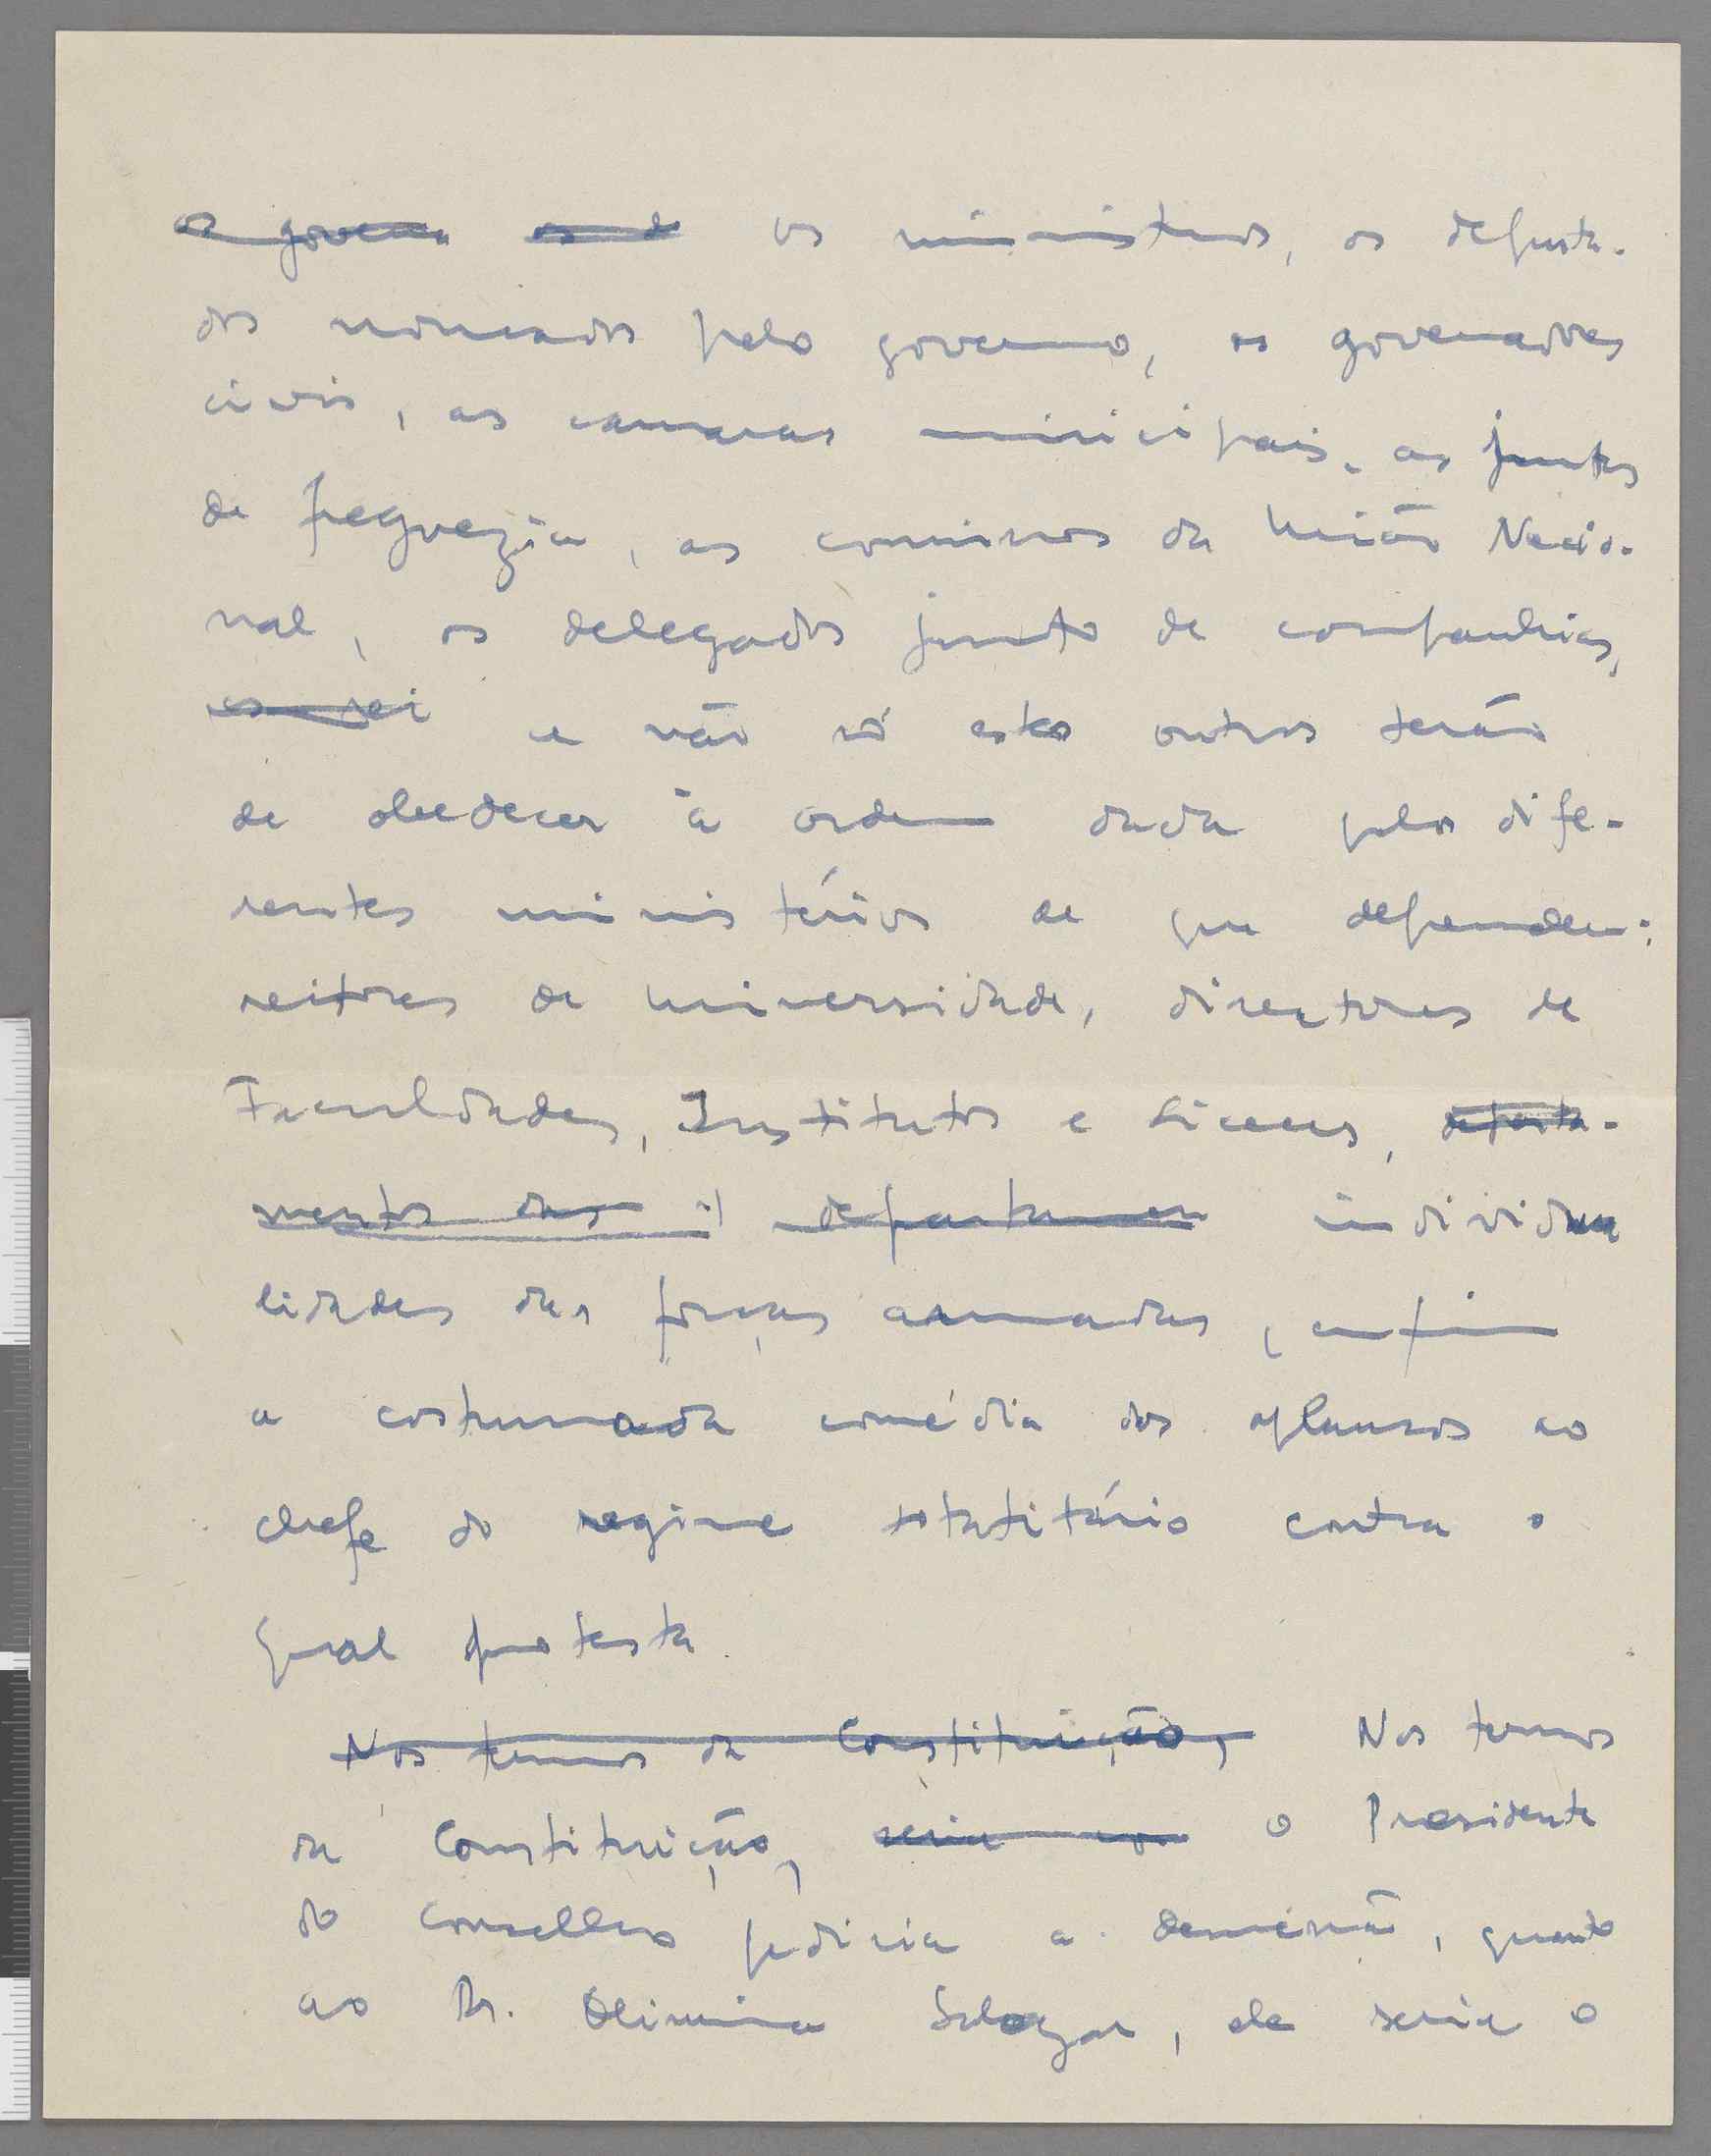 os governa os d os ministros, os deputa-
dos nomeados pelo governo, os governadores
civis, as camaras municipais, as juntas
de freguezia, as comissões da União Nacio-
nal, os delegados junto de companhias,
os rei e não só estes outros terão
de obedecer à ordem dada pelos dife-
rentes ministérios de que dependem:
reitores de universidade, directores de
Faculdades, Institutos e Liceus, departa-
mentos das departamen individua
lidades das forças armadas, enfim
a costumada comédia dos aplausos ao
chefe do regime totalitário contra o
qual protesta.
Nos termos da Constituição, Nos termos
da Constituição, seria o Presidente
do conselho pediria a demissão, quanto
ao Dr. Oliveira Salazar, ele seria o